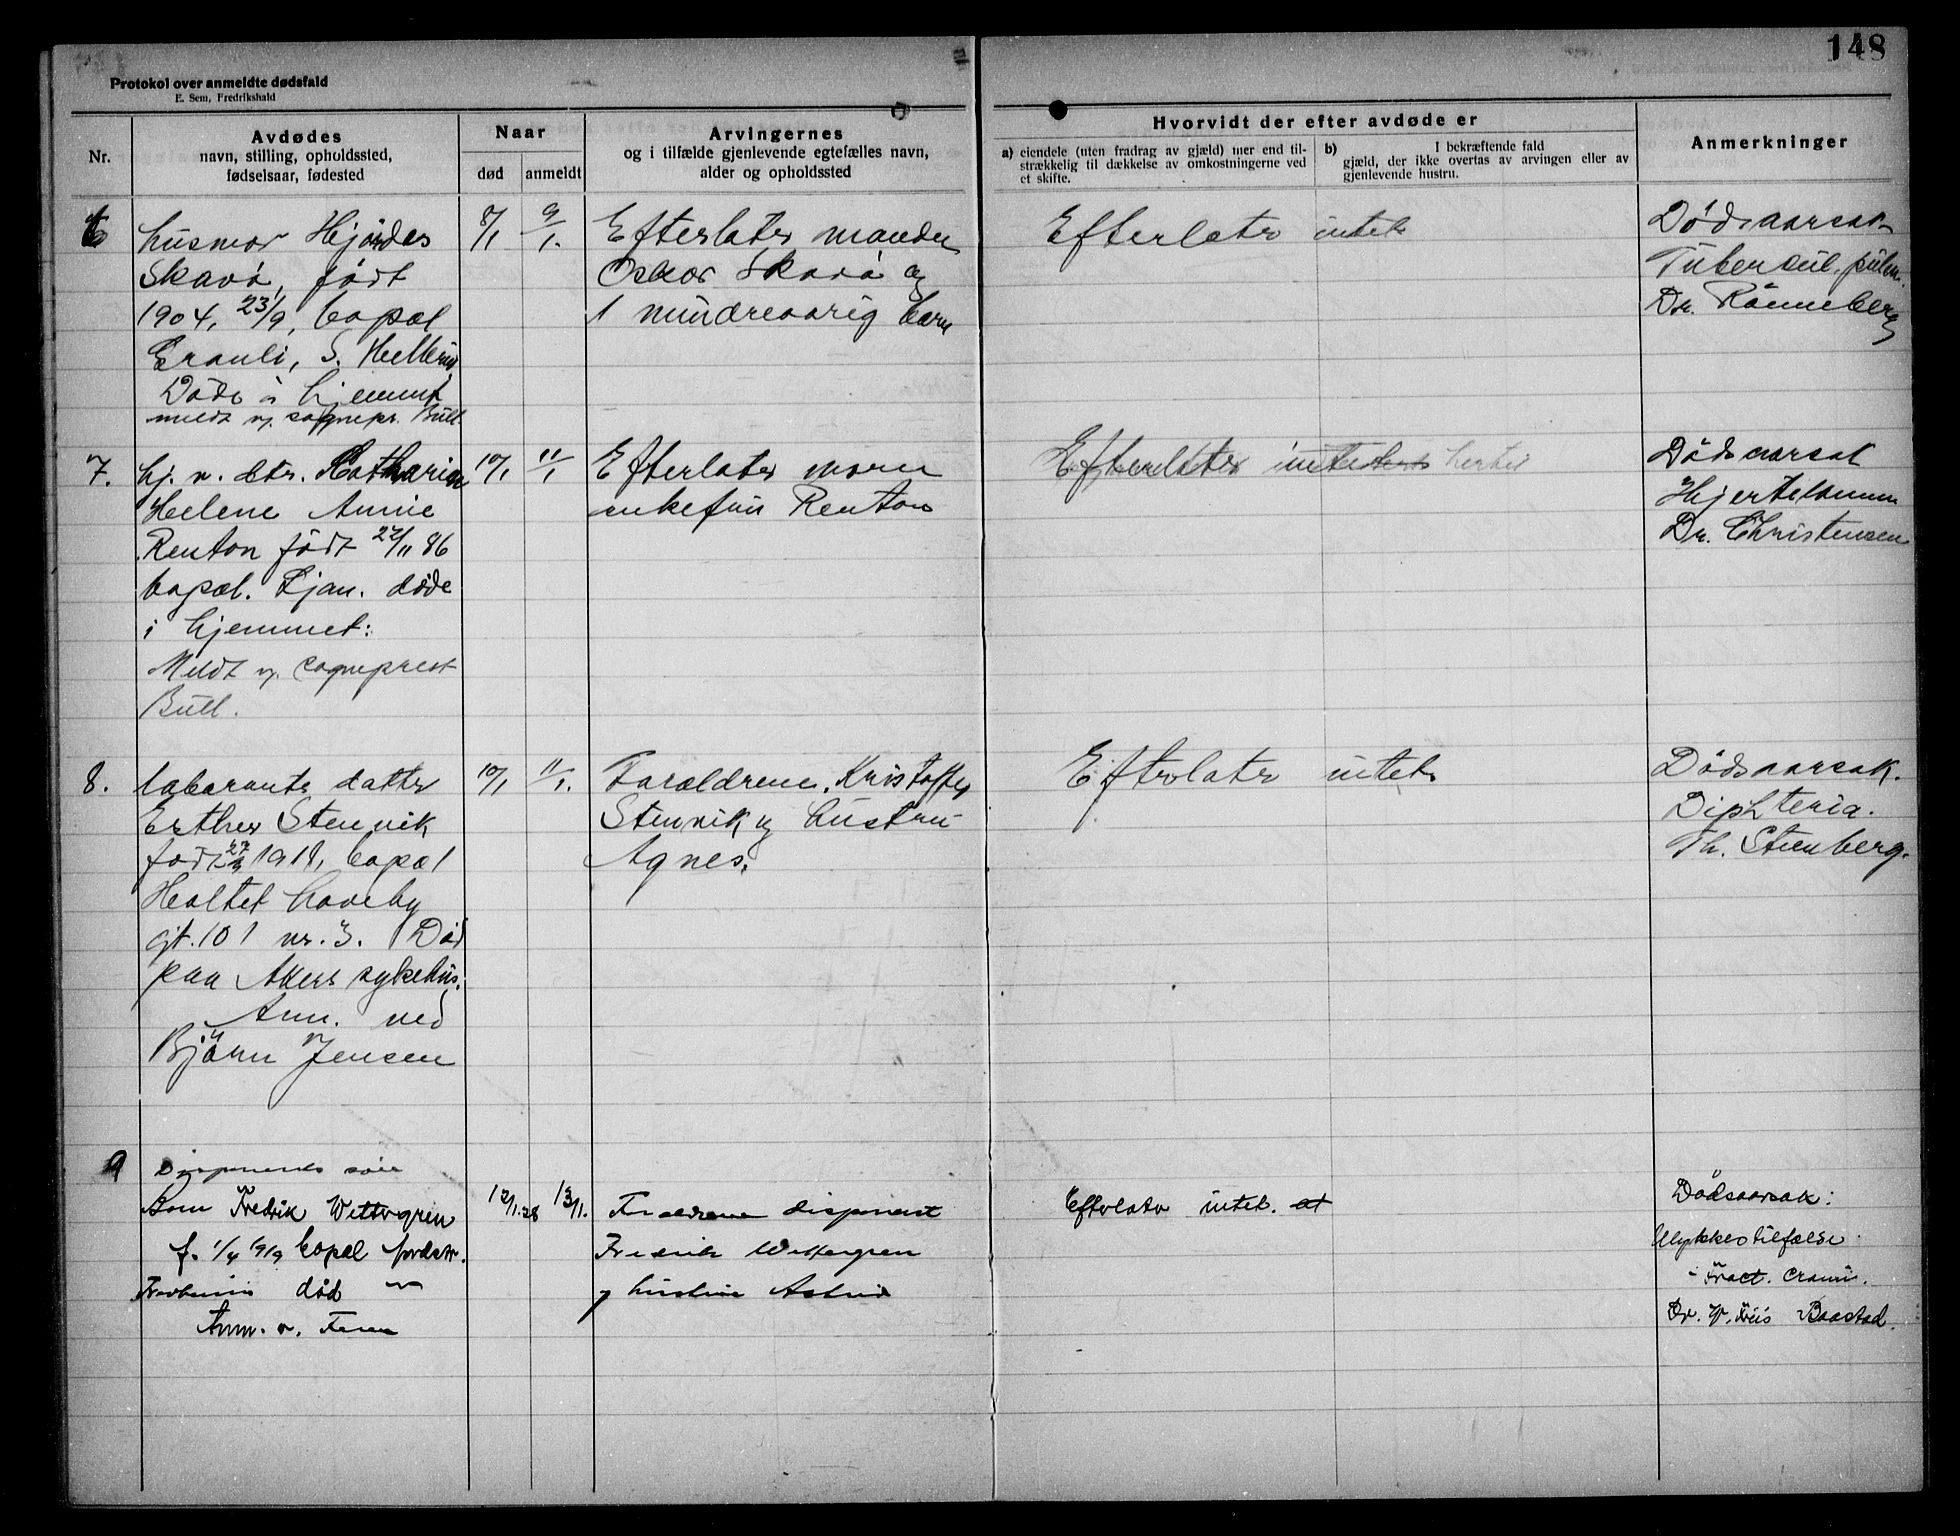 148
Protokol over anmeldte dødsfald
E. Sem, Fredrikshald
Nr.
Avdødes
navn, stilling, opholdssted,
fødselsaar, fødested
Naar
død
anmeldt
Arvingernes
og i tilfælde gjenlevende egtefælles navn,
alder og opholdssted
Hvorvidt der efter avdøde er
a) eiendele (uten fradrag av gjæld) mer end til-
strækkelig til dækkelse av omkostningerne ved
et skifte.
b) I bekræftende fald
gjæld, der ikke overtas av arvingen eller av
gjenlevende hustru.
Anmerkninger
6
husmor Hjördes
Skavö, født
1904, 23/9, bopæl
S.
Döde i hjemmet
meldt v. sognepr. Bull.
8/1
9/1.
Efterlater manden
Oskar Skavö og
1 mindreaarig barn
Efterlater intet
Dödsaarsak
Tubercul. pulm.
Dr. Rönneberg
7.
hj. v. dtr. Catharina
Helene Annie
Renton født 27/11 86
bopæl. Ljan. døde
i hjemmet:
Meldt v. sogneprest
Bull.
10/1
11/1
Efterlater moren
enkefru Renton
Efterlater intet
Dödsaarsak
Dr. Christensen
8.
laborants datter
Esther Stenvik
født 1918, bopæl
Holtet haveby
gt. 101 nr. 3. Död
paa Akers sykehus.
Anm. ved
Björn Jensen
10/1
11/1.
ForæLdrene, Kristoffer
Stenvik og hustru
Agnes.
Efterlater intet
Dödsaarsak.
Diphteria.
Th. Steenberg.
9
Disponents sön
Fredrik Wettergren
f. 1/4 1919 bopæl
død
Anm. v.
12/1.28
13/1.
Forældrene disponent
Fredrik Wettergren
og hustru Astrid
Efterlater intet. at
Dödsaarsak:
Ulykkestilfælde.
- Fract. cranii.
Dr. Baastad.